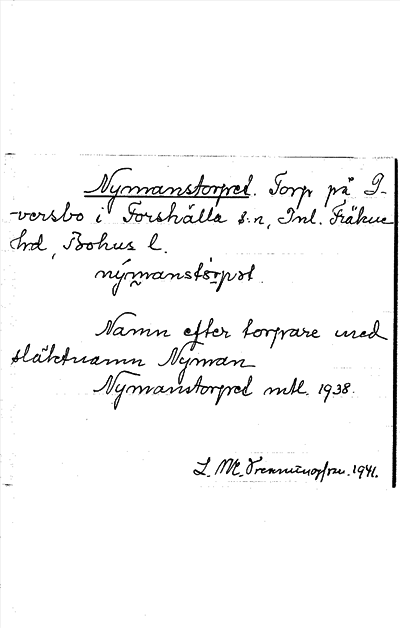 Nymanstorpet. Torp på I-
versbo i Forshälla s:n, Inl. Fräkne
hrd, Bohus l.
nýmanstòrpət.
Namn efter torpare med
släktnamn Nyman
Nymanstorpet mtl. 1938.
L. M. 1941.